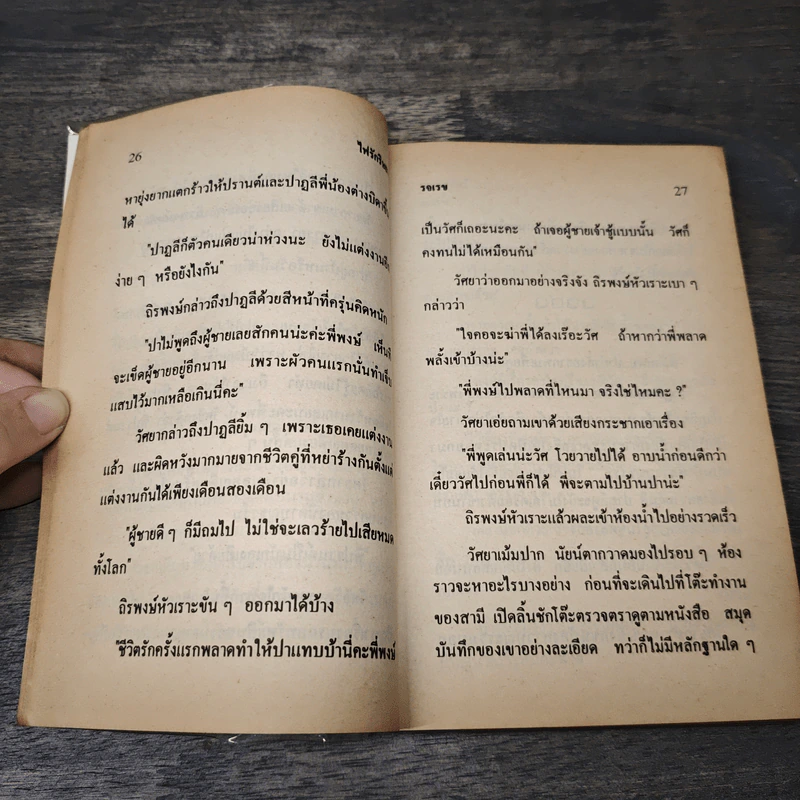 26
หายุ่งยากแตกร้าวให้ปรานต์และปาฏลีพี่น้องต่างบิดา
ได้
"ปาฏลีก็ตัวคนเดียวน่าห่วงนะ ยังไม่แต่งงานอีก
ง่าย ๆ หรือยังไงกัน"
ถิรพงษ์กล่าวถึงปาฏลีด้วยสีหน้าที่ครุ่นคิดหนัก
"ปาไม่พูดถึงผู้ชายเลยสักคนน่ะค่ะพี่พงษ์
จะเข็ดผู้ชายอยู่อีกนาน เพราะผัวคนแรกนั่นทำเจ็บ
แสบไว้มากเหลือเกินนี่คะ"
วัศยากล่าวถึงปาฏลียิ้ม ๆ เพราะเธอเคยแต่งงาน
แล้ว และผิดหวังมากมายจากชีวิตคู่ที่หย่าร้างกันตั้งแต่
แต่งงานกันได้เพียงเดือนสองเดือน
"ผู้ชายดี ๆ ก็มีถมไป ไม่ใช่จะเลวร้ายไปเสียหมด
ทั้งโลก"
ถิรพงษ์หัวเราะขัน ๆ ออกมาได้บ้าง
"ชีวิตรักครั้งแรกพลาดทำให้ปาแทบบ้านี่คะพี่พงษ์
รจเรข
27
เป็นวัศก็เถอะนะคะ ถ้าเจอผู้ชายเจ้าชู้แบบนั้น วัศก็
คงทนไม่ได้เหมือนกัน"
วัศยาว่าออกมาอย่างจริงจัง ถิรพงษ์หัวเราะเบา ๆ
กล่าวว่า
"ใจคอจะฆ่าพี่ได้ลงเรีอะวัศ ถ้าหากว่าพี่พลาด
พลั้งเข้าบ้างน่ะ"
"พี่พงษ์ไปพลาดที่ไหนมา จริงใช่ไหมคะ ?"
วัศยาเอ่ยถามเขาด้วยเสียงกระชากเอาเรื่อง
"พี่พูดเล่นน่ะวัศ โวยวายไปได้ อาบน้ำก่อนดีกว่า
เดี๋ยววัศไปก่อนพี่ก็ได้ พี่จะตามไปบ้านปาน่ะ"
ถิรพงษ์หัวเราะแล้วผละเข้าห้องน้ำไปอย่างรวดเร็ว
วัศยาเม้มปาก นัยน์ตากวาดมองไปรอบ ๆ ห้อง
ราวจะหาอะไรบางอย่าง ก่อนที่จะเดินไปที่โต๊ะทำงาน
ของสามี เปิดลิ้นชักโต๊ะตรวจตราดูตามหนังสือ สมุด
บันทึกของเขาอย่างละเอียด ทว่าก็ไม่มีหลักฐานใด ๆ